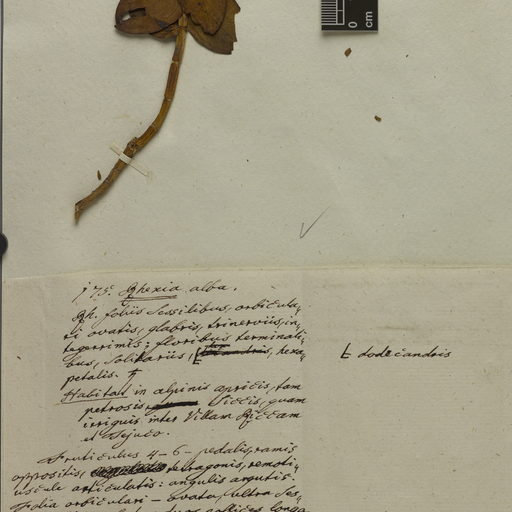 0
cm
175. Rhexia alba.
Rh. foliis sessilibus, orbicula-
ri ovatis, glabris, trinerviis, in-
tegerrimis; floribus terminali-
bus, solitariis, hexa-
petalis. ♄
t dodecandris
Habitat in alpinis apricis, tam
petrosis, siccis, quam
irriguis inter Villam
et Tejuco.
Fruticulus 4-6-pedalis, ramis
oppositis, tetragonis, remoti-
uscule articulatis: angulis argutis.
Folia orbiculari-ovata, ultra ses-
longa